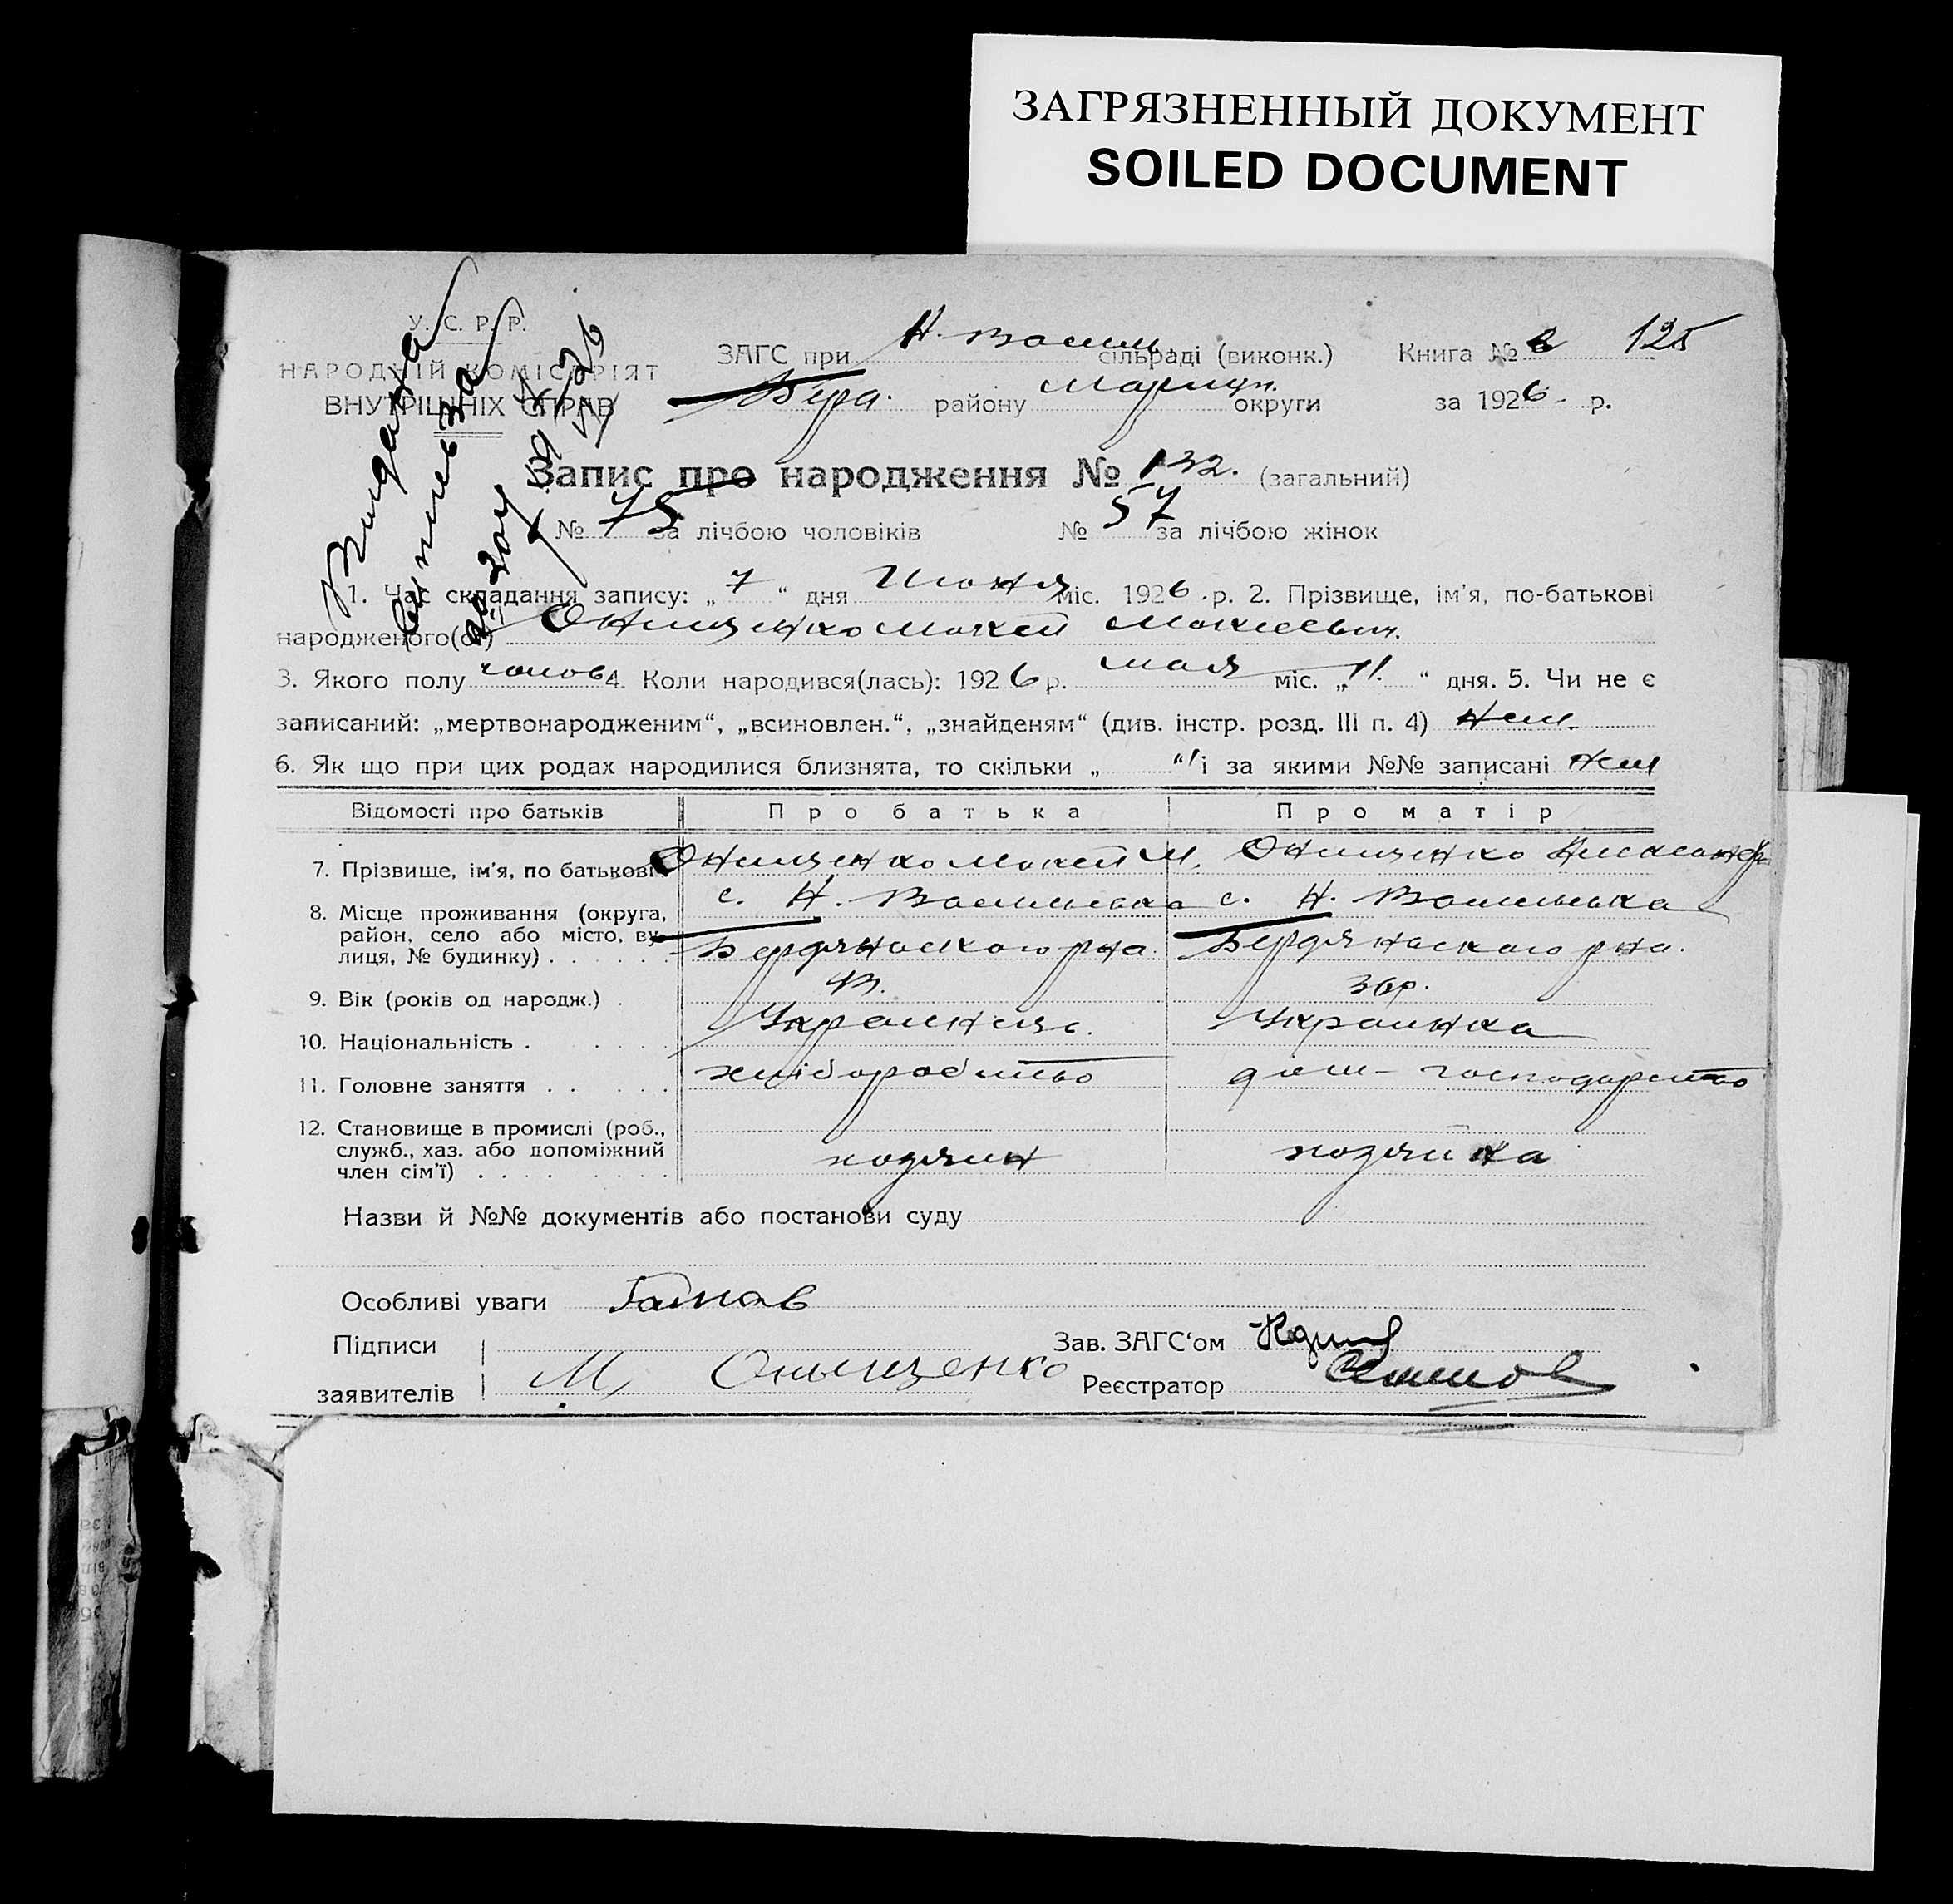 ЗАГРЯЗНЕННЫЙ ДОКУМЕНТ
SOILED DOCUMENT
У. С. Р. Р.
НАРОДНІЙ КОМІСАРІЯТ
ВНУТРІШНІХ СПРАВ
ЗАГС при Н. сільраді (виконк.) Книга № 125
району округи за 1926 р.
Запис про народження № 132. (загальний)
№ 75 за лічбою чоловіків № 57 за лічбою жінок
1. Час складання запису: „7“ дня Июня міс. 1926 р. 2. Прізвище, ім'я, по-батькові
народженого(ої) Онищенко Мокей Мокеевич.
3. Якого полу чолов 4. Коли народився(лась): 1926 р. мая міс. „11.“ дня. 5. Чи не є
записаний: „мертвонародженим“, „всиновлен.“, „знайденям“ (див. інстр. розд. III п. 4) Нет.
6. Як що при цих родах народилися близнята, то скільки „ “ і за якими №№ записані Нет
Відомості про батьків Про батька Про матір
7. Прізвище, ім'я, по батькові Онищенко Мокей М. Онищенко
8. Місце проживання (округа, с. Н. с. Н.
район, село або місто, ву-
лиця, № будинку) Бердяноского рна. Бердяноского рна.
9. Вік (років од народж.) 36р.
10. Національність Украинец. Украинка
11. Головне заняття хліборобство дом-господарство
12. Становище в промислі (роб.,
служб., хаз. або допоміжний хозяин хозяйка
член сім'ї)
Назви й №№ документів або постанови суду
Особливі уваги
Підписи Зав. ЗАГС'ом
заявителів М. Онищенко Реєстратор